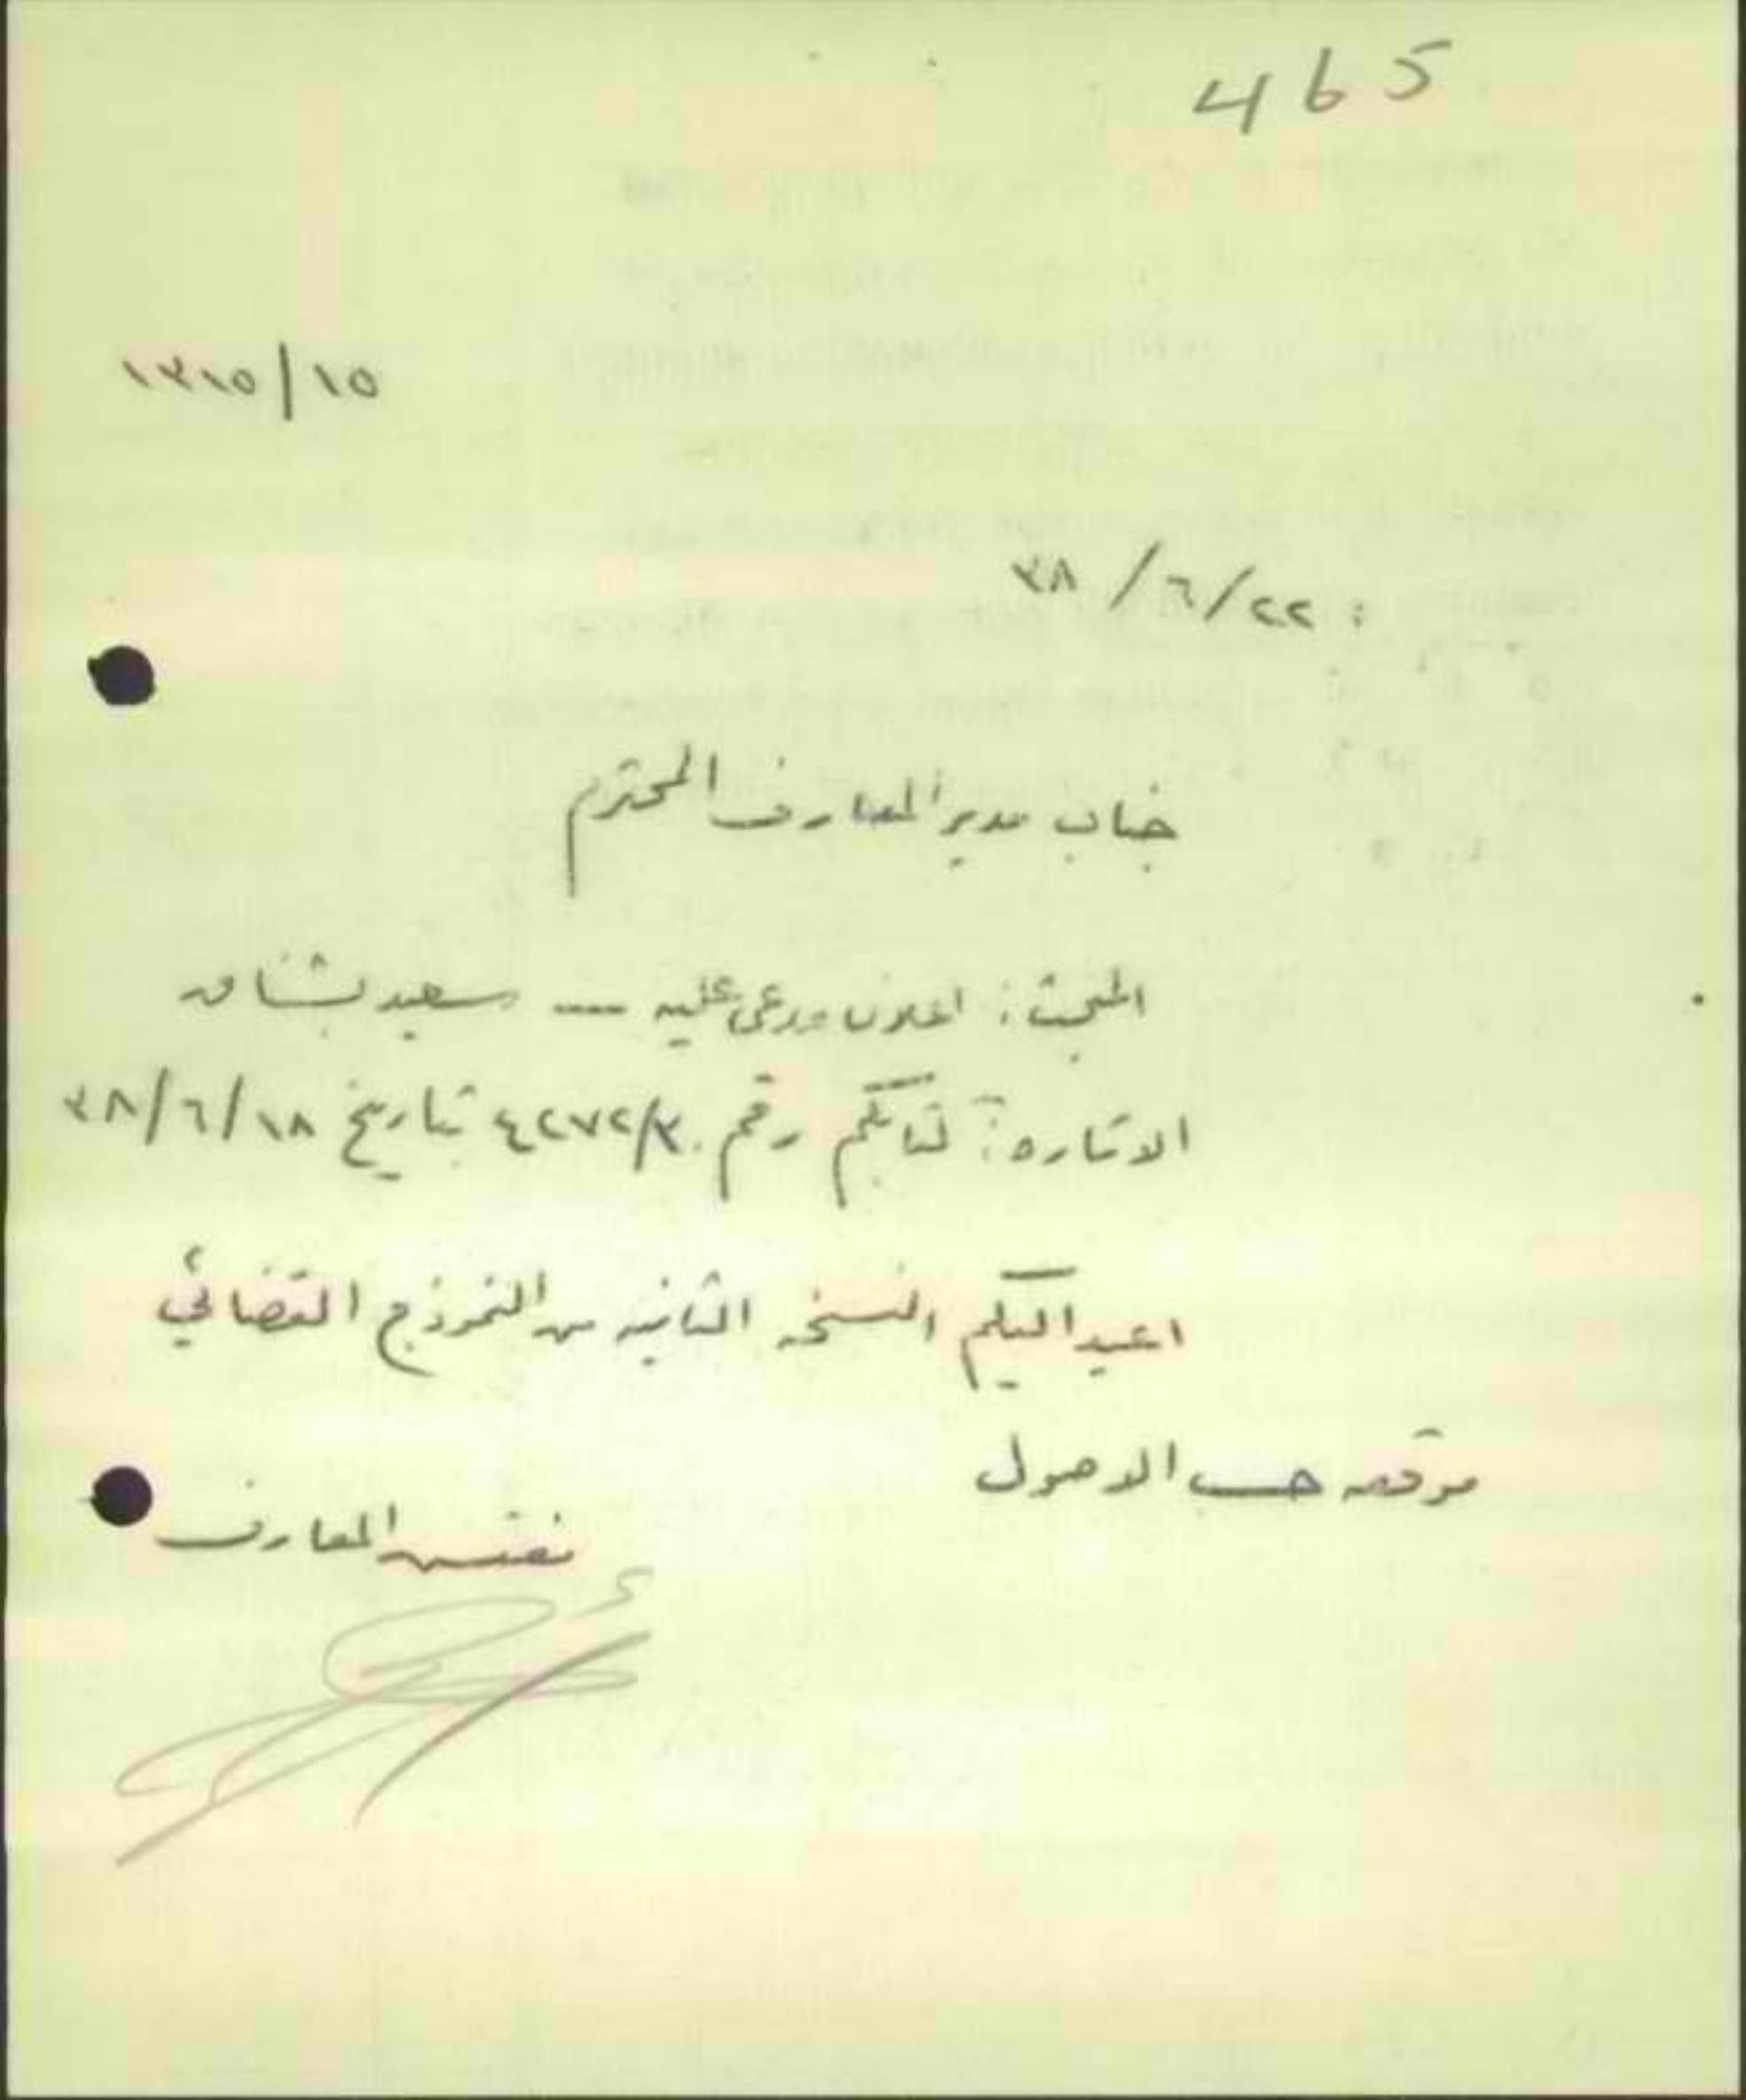 465
١٣١٥/١٥
: ٢٢/٦/٣٨
جناب مدير المعارف المحترم
المبحث: اعلان مدعى عليه — سعيد بشناق
الاشارة: كتابكم رقم ٤٢٧٢/٣٠ تاريخ ١٨/٦/٣٨
اعيد اليكم النسخه الثانيه من النموذج القضائي
موقعه حسب الاصول
مفتش المعارف